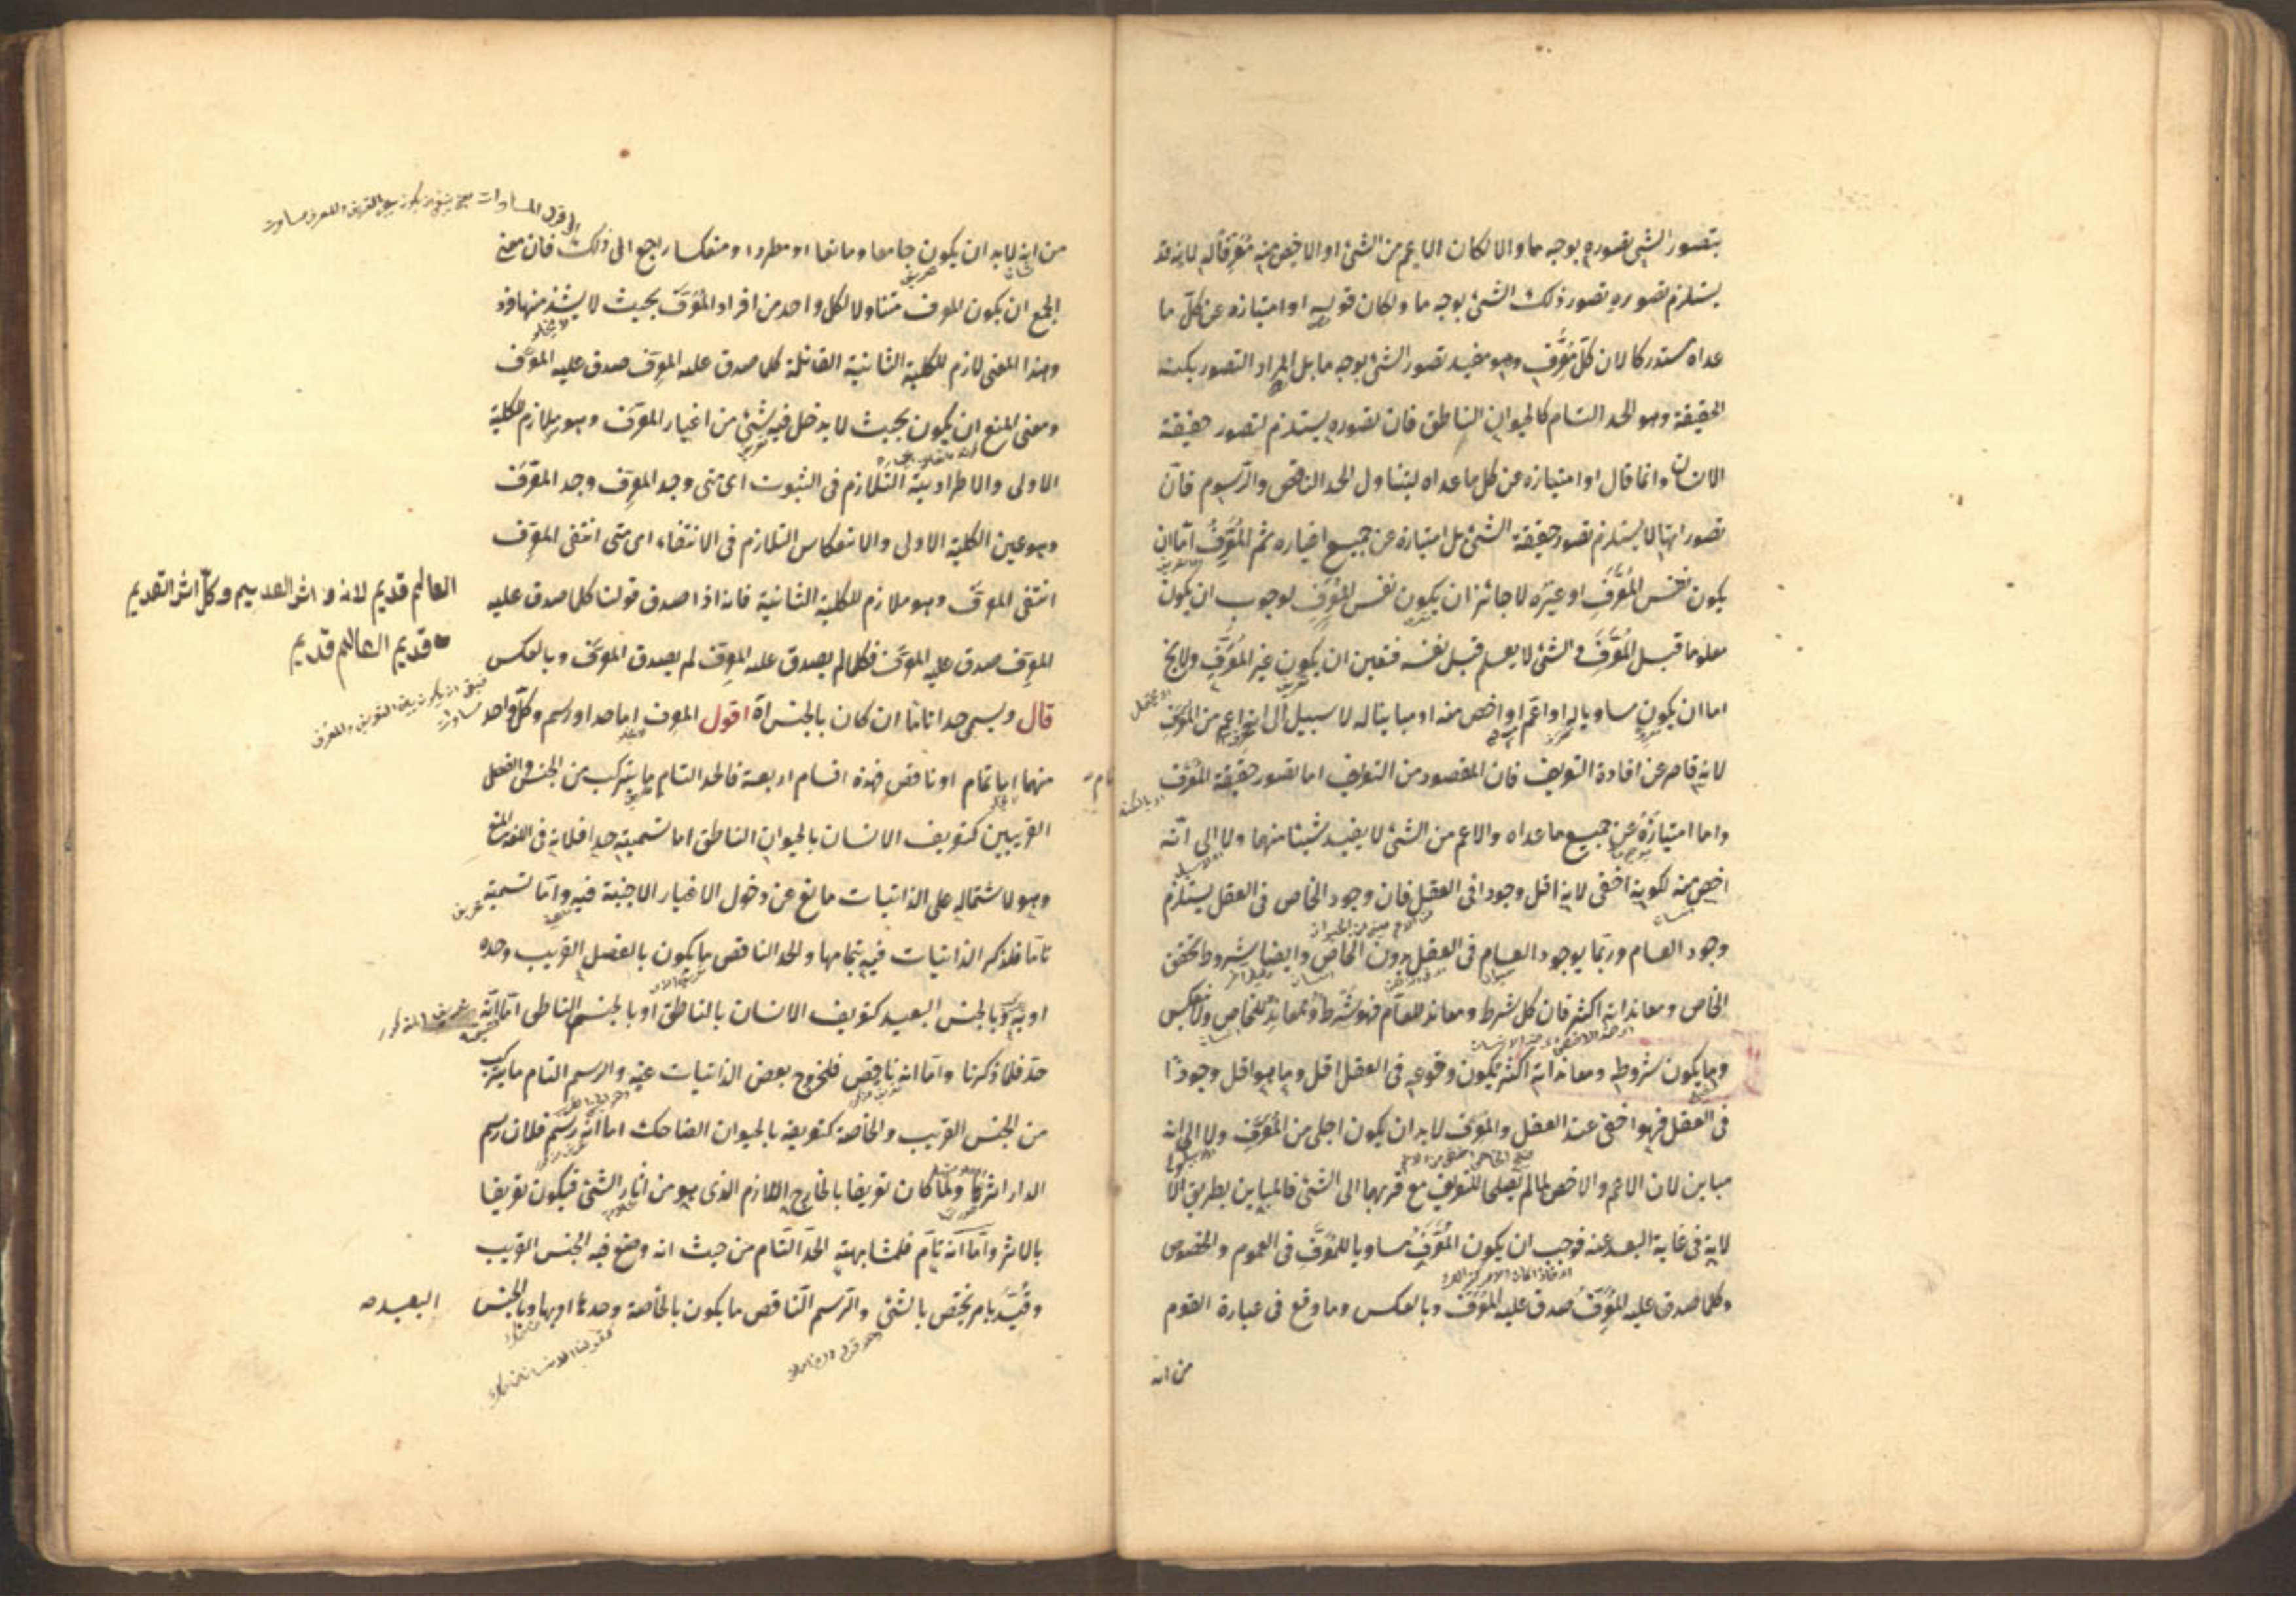 بتصور الشئ تصوره بوجه ما والا لكان الاعم من الشئ او الاخص منه معرفا له لانه قد
يستلزم تصوره تصور ذلك الشئ بوجه ما ولكان قوله او امتيازه عن كل ما
عداه مستدركا لان كل معرف وهو مفيد تصور الشئ بوجه ما بل المراد التصور بكنه
الحقيقة وهو الحد التام كالحيوان الناطق فان تصوره يستلزم لتصور حقيقة
الانسان وانما قال او امتيازه عن كل ما عداه ليتناول الحد الناقص والرسوم فان
تصوراتها لا يستلزم تصور حقيقة الشئ بل امتيازه عن جميع اغياره ثم المعرف اما ان
يكون نفس المعرف او غيره لا جائز ان يكون نفس المعرف لوجوب ان يكون
معلوما قبل المعرف والشئ لا يعلم قبل نفسه فتعين ان يكون غير المعرف ولا يخ
اما ان يكون مساويا له او اعم او اخص منه او مباينا له لا سبيل الى انه اعم من المعرف
لانه قاصر عن افادة التعريف فان المقصود من التعريف اما تصور حقيقة المعرف
واما امتيازه عن جميع ما عداه والاعم من الشئ لا يفيد شيئا منهما ولا الى انه
اخص منه لكونه اخفى لانه اقل وجودا فى العقل فان وجود الخاص فى العقل يستلزم
وجود العام وربما يوجد العام فى العقل بدون الخاص وايضا شروط تحقق
الخاص ومعانداته اكثر فان كل شرط ومعاند للعام فهو شرط ومعاند للخاص ولا ينعكس
وما يكون شروطه ومعانداته اكثر يكون وقوعه فى العقل اقل وما هو اقل وجودا
فى العقل فهو اخفى عند العقل والمعرف لا بد ان يكون اجلى من المعرف ولا الى انه
مباين لان الاعم والاخص لما لم يصلحا للتعريف مع قربهما الى الشئ فالمباين بطريق الاولى
لانه فى غاية البعد عنه فوجب ان يكون المعرف مساويا للمعرف فى العموم والخصوص
وكلما صدق عليه المعرف صدق عليه المعرف وبالعكس وما وقع فى عبارة القوم
من انه
من انه لا بد ان يكون جامعا ومانعا او مطردا ومنعكسا راجع الى ذلك فان معنى
الجمع ان يكون المعرف متناولا لكل واحد من افراد المعرف بحيث لا يشذ منها فرد
وهذا المعنى لازم للكلية الثانية القائلة كل ما صدق عليه المعرف صدق عليه المعرف
ومعنى المنع ان يكون بحيث لا يدخل فيه شئ من اغيار المعرف وهو ملازم للكلية
الاولى والاطراد هو التلازم فى الثبوت اى متى وجد المعرف وجد المعرف
وهو عين الكلية الاولى والانعكاس التلازم فى الانتفاء اى متى انتفى المعرف
انتفى المعرف وهو ملازم للكلية الثانية فانه اذا صدق قولنا كلما صدق عليه
المعرف صدق عليه المعرف فكل ما لم يصدق عليه المعرف لم يصدق المعرف وبالعكس
قال ويسمى حدا تاما ان كان بالجنس اه اقول المعرف اما حد او رسم وكل واحد
منهما اما تام او ناقص فهذه اقسام اربعة فالحد التام ما يتركب من الجنس والفصل
القريبين كتعريف الانسان بالحيوان الناطق اما تسميته حدا فلانه فى اللغة المنع
وهو لاشتماله على الذاتيات مانع عن دخول الاغيار الاجنبية فيه واما تسميته
تاما فلذكر الذاتيات فيه بتمامها والحد الناقص ما يكون بالفصل القريب وحده
او به وبالجنس البعيد كتعريف الانسان بالناطق او بالجسم الناطق اما انه
حد فلما ذكرنا واما انه ناقص فلخروج بعض الذاتيات عنه والرسم التام ما يتركب
من الجنس القريب والخاصة كتعريفه بالحيوان الضاحك اما انه رسم فلان رسم
الدار اثرها ولما كان تعريفا بالخارج اللازم الذى هو من اثار الشئ فيكون تعريفا
بالاثر واما انه تام فلمشابهته الحد التام من حيث انه وضع فيه الجنس القريب
وقيد بامر يختص بالشئ والرسم الناقص ما يكون بالخاصة وحدها او بها وبالجنس
البعيد صح
العالم قديم لانه اثر القديم وكل اثر القديم
قديم العالم قديم